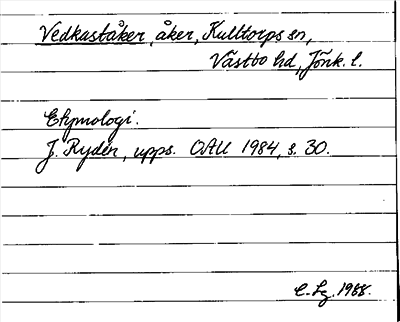 Vedkaståker, åker, Kulltorps sn,
Västbo hd, Jönk. l.
Etymologi.
J. Rydén, upps. OAU 1984, s. 30.
C. Lg. 1988.